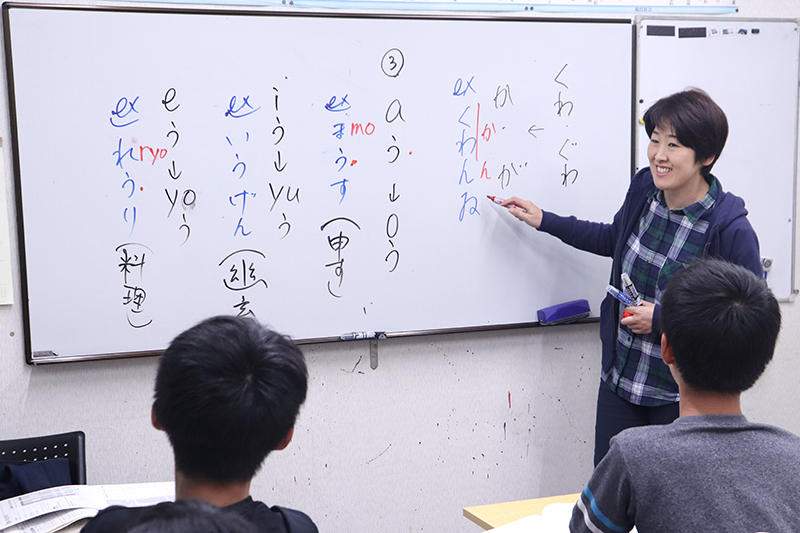 くわ・ぐわ
←
か が
か・ん
ex くわんゐ
③
aう↓oう
ex まうす (申す)
mo
iう↓yuう
ex いうげん
eう↓yoう
ex れうり (料理)
ryo